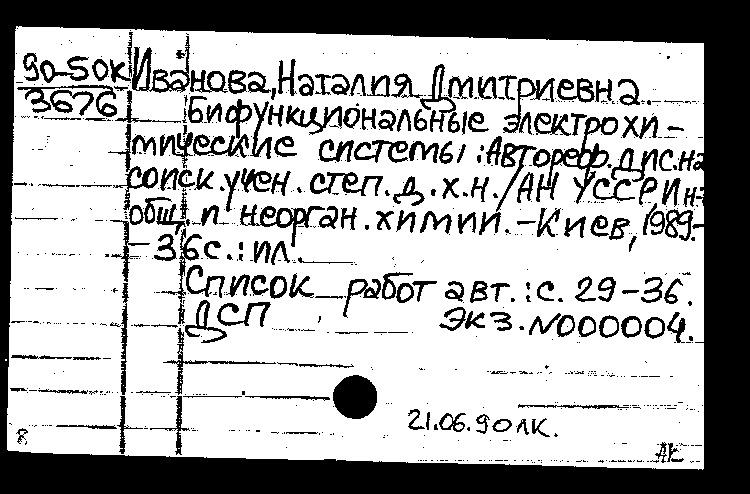 90-50к Иванова, Наталия Дмитриевна.
3676 Бифункциональные электрохи-
мические системы: Автореф. дис. на
соиск. учен. степ. д.х.н. / АН УССР, Ин-т
общ. и неорган. химии. - Киев, 1989.-
- 36с.: ил.
Список работ авт.: с. 29-36.
ДСП Экз. №000004.
21.06.90 лк.
8 АК